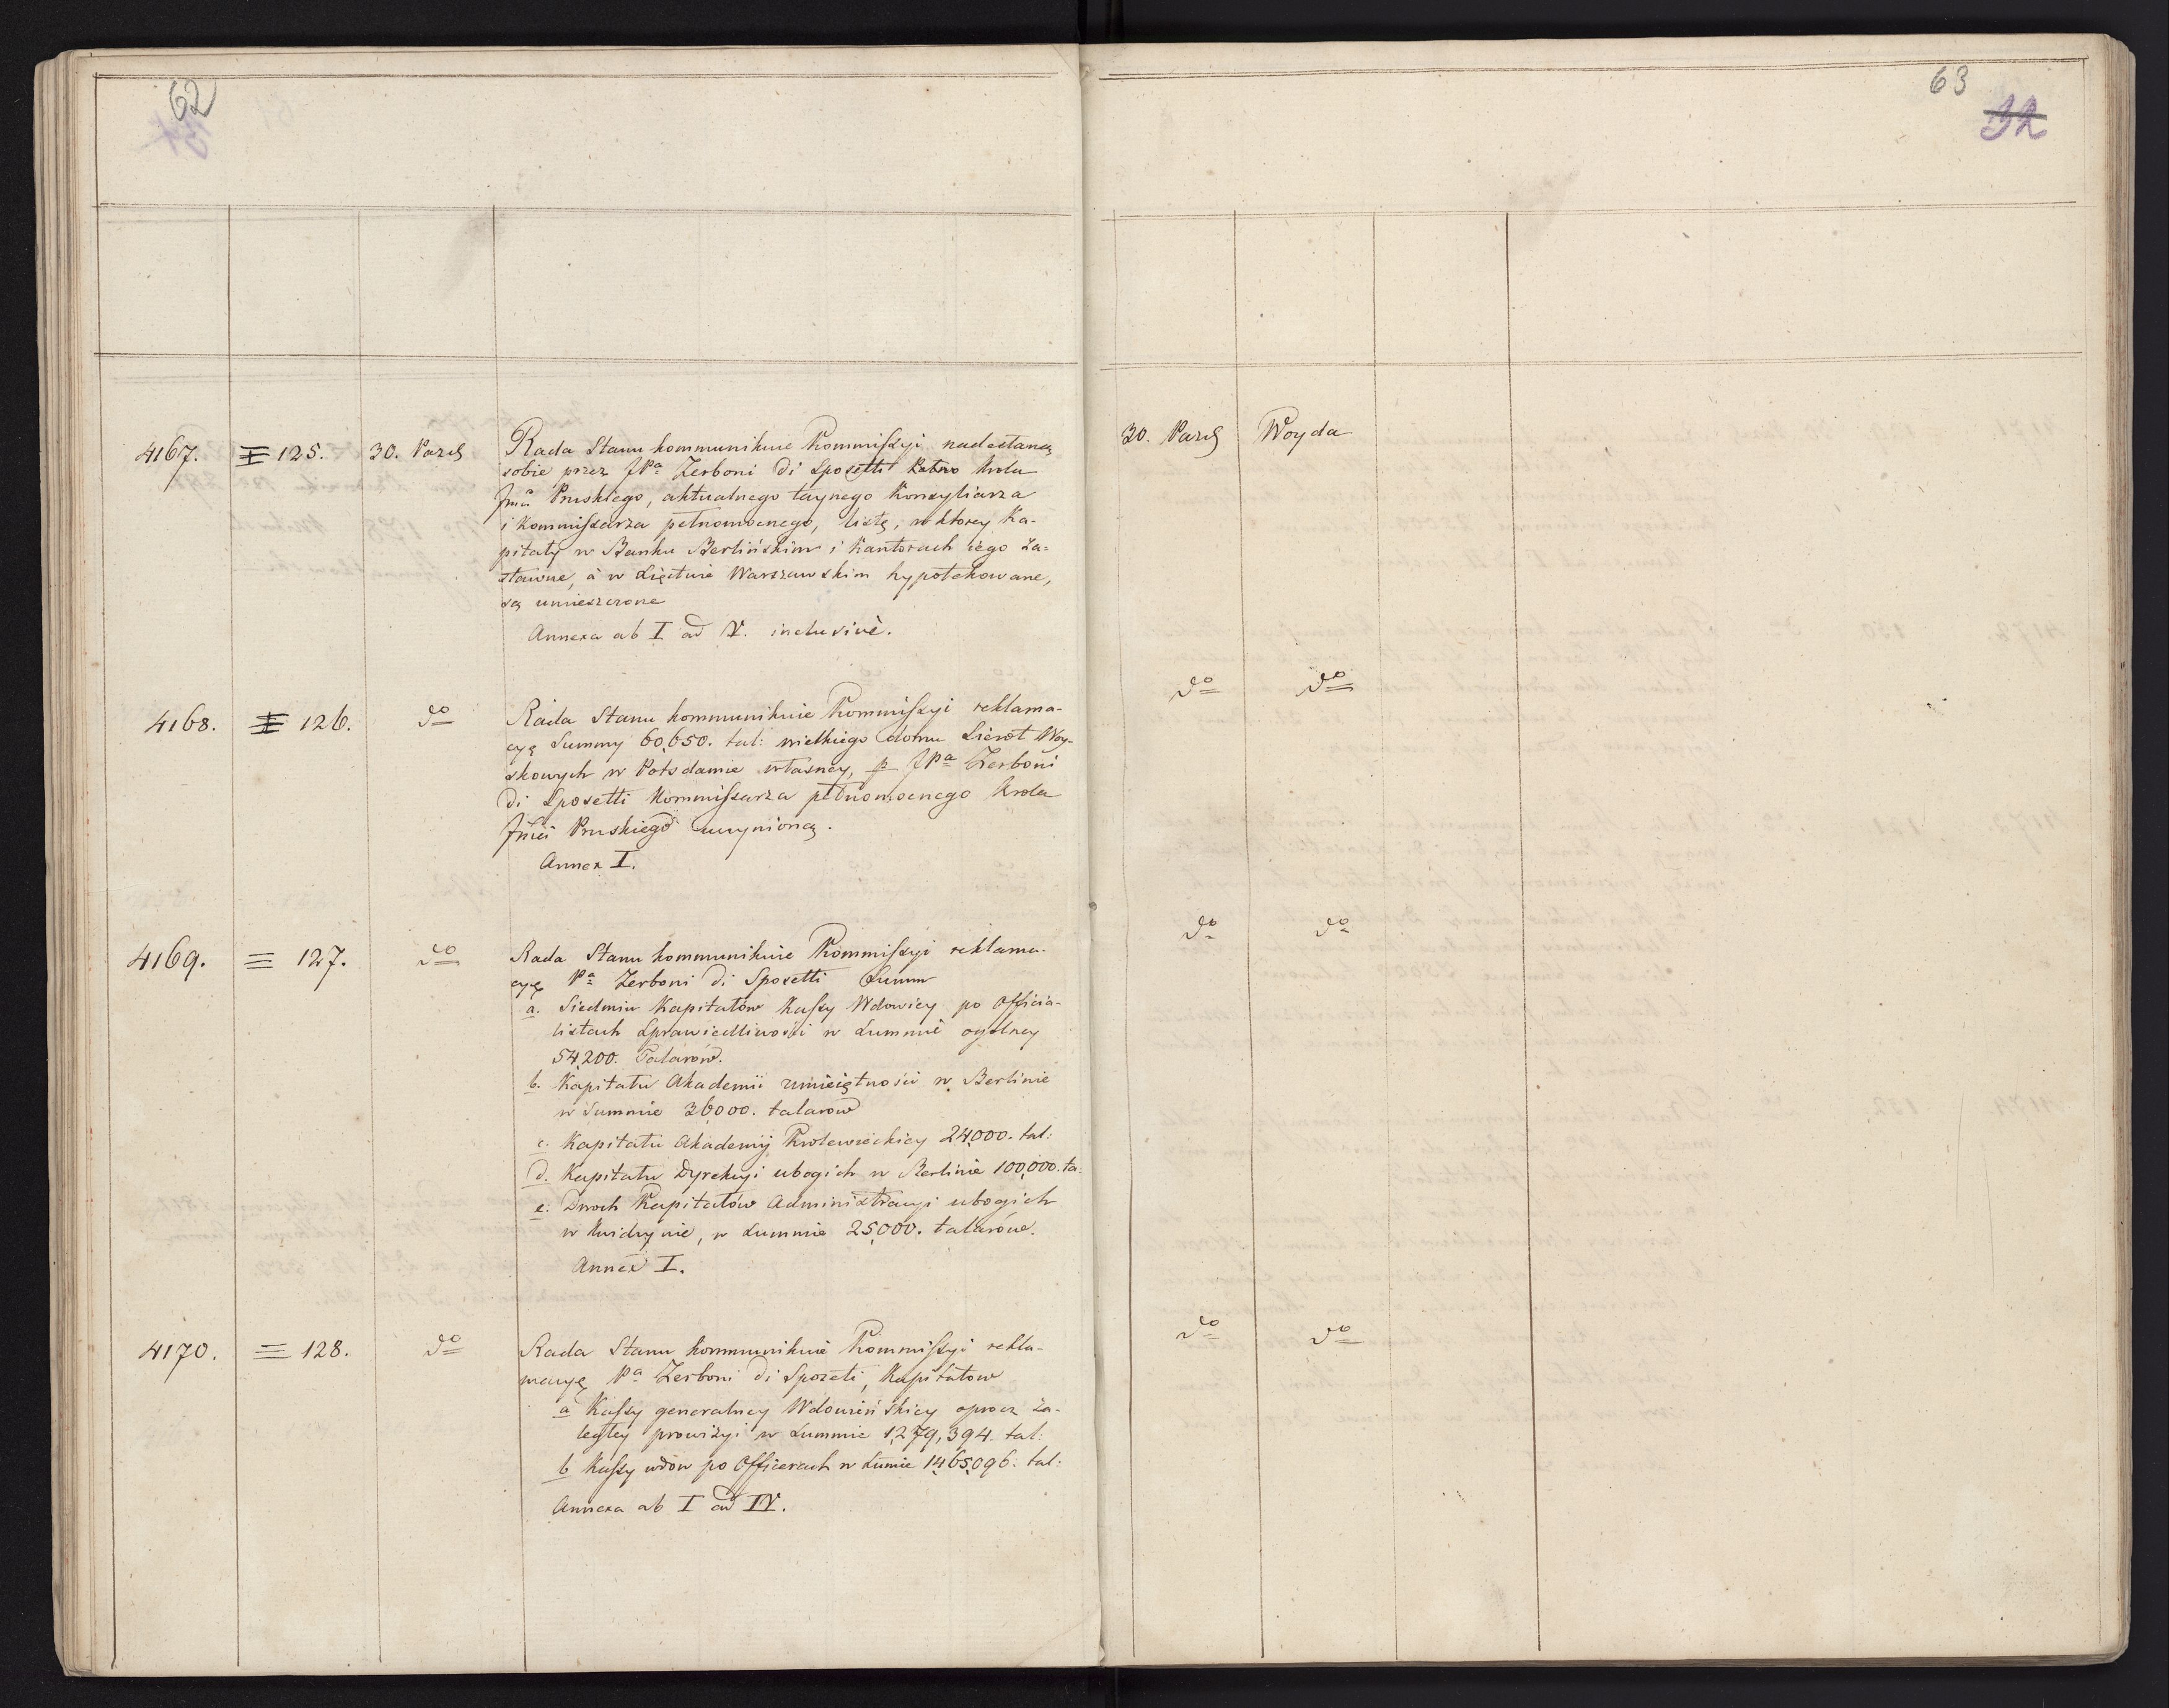 62
63
32
4167. 125. 30. Pazd Rada Stanu kommunikuie Kommissyi nadesłaną
sobie przez JPa Zerboni di Sposetti Krola
Jmci Pruskiego, aktualnego taynego Konsyliarza
i Kommissarza pełnomocnego, listę, w ktorey Ka-
pitały w Banku Berlińskim i Kantorach iego za-
stawne, a w Xięstwie Warszawskim hypotekowane,
są umieszczone
Annexa ab I ad V. inclusivè.
30. Pazd Woyda
4168. 126. do Rada Stanu kommunikuie Kommissyi reklama-
cyę Summy 60,650. tal: wielkiego domu Sierot Woy-
skowych w Potsdamie własney, p JPa Zerboni
di Sposetti Kommissarza pełnomocnego Krola
Jmci Pruskiego uczynioną.
Annex I.
do do
4169. 127. do Rada Stanu kommunikuie Kommissyi reklama-
cyę Pa Zerboni di Sposetti Summ
a. Siedmiu Kapitałów Kassy Wdowiey po Officia-
listach Sprawiedliwości w Summie ogolney
54,200. Talarów.
b. Kapitału Akademii umieiętności w Berlinie
w Summie 36000. talarow
c. Kapitału Akademij Krolewieckiey 24,000. tal:
d. Kapitału Dyrekcyi ubogich w Berlinie 100,000. ta:
e. Dwoch Kapitałów Administracyi ubogich
w Kwidzynie, w Summie 25,000. talarów.
Annex I.
do do
4170. 128. do Rada Stanu kommunikuie Kommissyi rekla-
macyę Pa Zerboni di Sposeti, Kapitałow
a Kassy generalney Wdowieńskiey oprocz za-
ległey prowizyi w Summie 1,279,394. tal:
b Kassy wdów po Officerach w Sumie 1,465,096. tal:
Annexa ab I ad IV.
do do